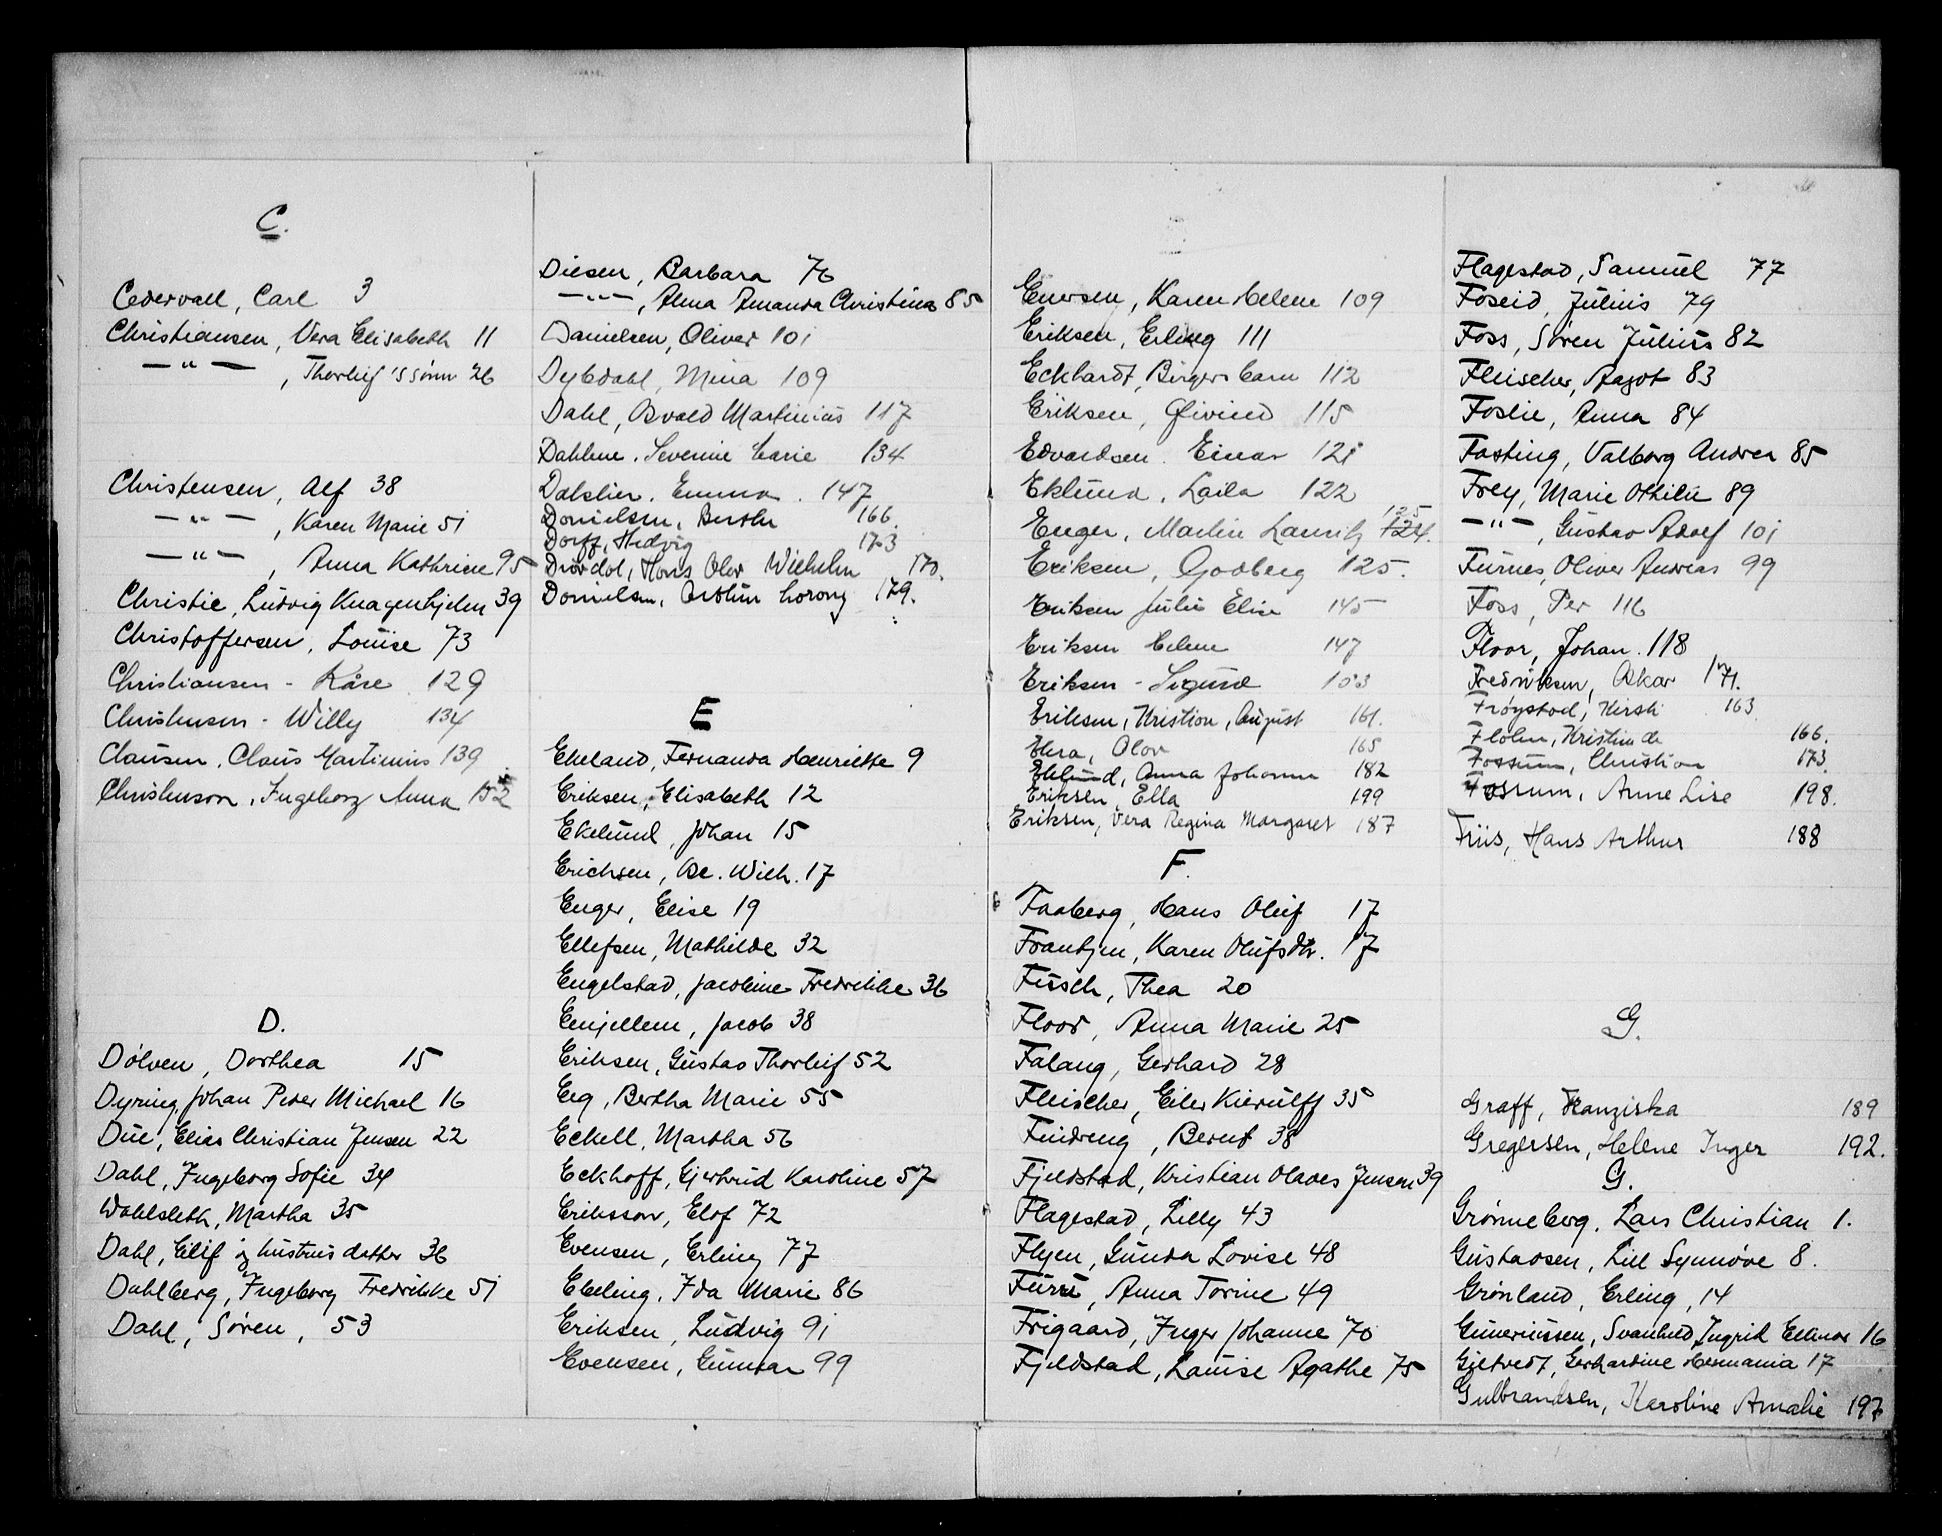 C.
Cedervall, Carl 3
Christiansen, Vera Elisabeth 11
—"—, Thorleif 's sønn 26
Christensen, Alf 38
—"—, Karen Marie 51
—"—, Anna Kathrine 95
Christie, Ludvig Knagenhjelm 39
Christoffersen, Louise 73
Christiansen - Kåre 129
Christensen - Willy 134
Clausen, Claus Martinius 139
Christenson, Ingeborg Anna 152
D.
Dölven, Dorthea 15
Dyring, Johan Peder Michael 16
Due, Elias Christian Jensen 22
Dahl, Ingeborg Sofie 34
Wahlsleth, Martha 35
Dahl, Eilif og hustrus datter 36
Dahlberg, Ingeborg Fredrikke 51
Dahl, Søren, 53
Diesen, Barbara 76
—"—, Anna Amanda Christina 85
Danielsen, Oliver 101
Dybdahl, Mina 109
Dahl, Osvald Martinius 117
Dahlene, Severine Marie 134
Dalslien, Emma. 147
Danielsen, Berthe 166.
Dorff, Hedvig 173
Drövdal, Hans Olav Wilhelm 170.
Danielsen, Arthur 179.
E
Ekeland, Fernanda Henriette 9
Eriksen, Elisabeth 12
Ekelund, Johan 15
Erichsen, Wilh. 17
Enger, Elise 19
Ellefsen, Mathilde 32
Engelstad, Jacobine Fredrikke 36
Engjellem, Jacob 38
Eriksen, Gustav Thorleif 52
Eeg, Bertha Marie 55
Eckell, Martha 56
Eckhoff, Gjertrud Karoline 57
Eriksson, Elof 72
Evensen, Erling 77
Ebeling, Ida Marie 86
Eriksen, Ludvig 91
Evensen, Gunnar 99
Enersen, Karen Helene 109
Eriksen, Erling 111
Eckhardt, Birgers barn 112
Eriksen, Øivind 115
Edvardsen. Einar 121
Eklund, Laila 122
Enger, Martin Lauritz 124. 125
Eriksen, Godberg 125.
Eriksen Julie Elise 145
Eriksen Helene 147
Eriksen - Sigurd 153
Eriksen, Kristian, August 161.
Ekra, Olav 165
Eklund, Anna Johanne 182
Eriksen, Ella 199
Eriksen, Vera Regina Margaret 187
F.
Faaberg, Hans Oluf 17
Frantzen, Karen Olufsdtr. 17
Fusch, Thea 20
Flood, Anna Marie 25
Falang, Gerhard 28
Fleischer, Eiler Kierulff 35
Findreng, Bernt 38
Fjeldstad, Kristian Olaves Jensen 39
Flagestad, Lilly 43
Flyen, Gunda Lovise 48
Furu, Anna Torine 49
Frigaard, Inger Johanne 70
Fjeldstad, Lauise Agathe 75
Flagestad, Samuel 77
Foseid, Julius 79
Foss, Søren Julius 82
Fleischer, Aagot 83
Foslie, Anna 84
Fasting, Valborg Andrea 85
Frey, Marie Othilie 89
—"—, Gustav Adolf 101
Furnes, Oliver Andreas 99
Foss, Per 116
Floor, Johan. 118
Fredriksen, Oskar 171.
Frøystad, Kirsti 163
Flolm, Kristine de 166.
Fossum, Christian 173.
Fossum, Anne Lise 198.
Friis, Hans Arthur 188
G.
Graff, Franziska 189
Gregersen, Helene Inger 192.
G.
Grønneberg, Lars Christian 1.
Gustavsen, Lill Synnøve 8.
Grønland, Erling, 14
Guneriussen, Svanhild Ingrid Ellinor 16
Gjetvedt, Gerhardine Hermania 17
Gulbrandsen, Karoline Amalie 197